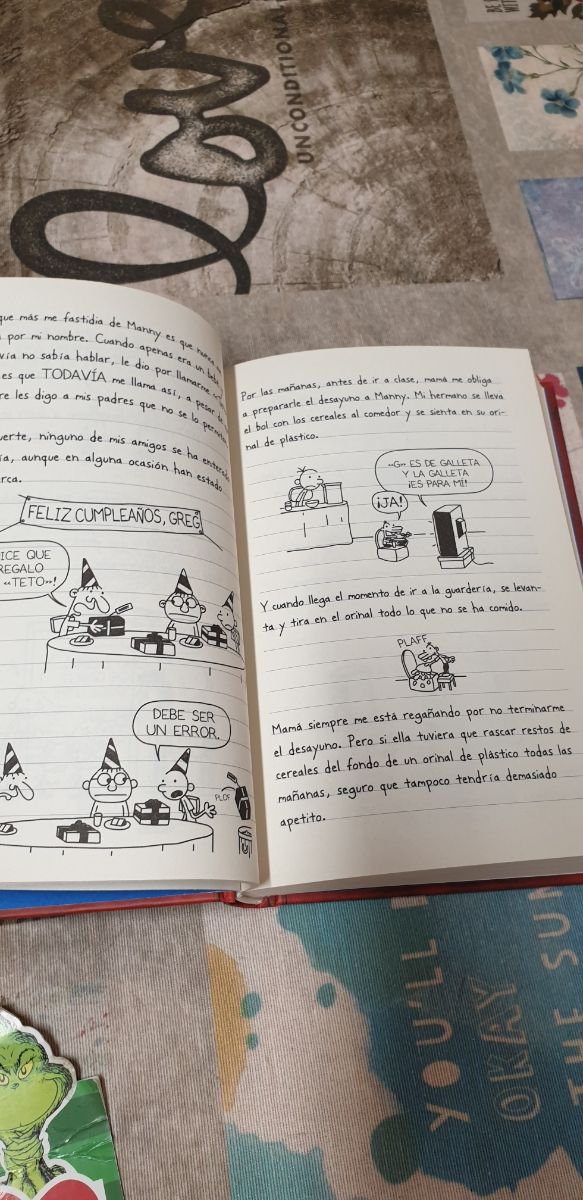 love
UNCONDITIONAL
que más me fastidia de Manny es que nunca
por mi nombre. Cuando apenas era un bebé
vía no sabía hablar, le dio por llamarme
es que TODAVÍA me llama así, a pesar de
re les digo a mis padres que no se lo permitan
uerte, ninguno de mis amigos se ha enterado
ía, aunque en alguna ocasión han estado
rca.
FELIZ CUMPLEAÑOS, GREG
ICE QUE
REGALO
«TETO»!
DEBE SER
UN ERROR.
PLOF
Por las mañanas, antes de ir a clase, mamá me obliga
a prepararle el desayuno a Manny. Mi hermano se lleva
el bol con los cereales al comedor y se sienta en su ori-
nal de plástico.
«G» ES DE GALLETA
Y LA GALLETA
¡ES PARA MÍ!
¡JA!
Y cuando llega el momento de ir a la guardería, se levan-
ta y tira en el orinal todo lo que no se ha comido.
PLAFF
Mamá siempre me está regañando por no terminarme
el desayuno. Pero si ella tuviera que rascar restos de
cereales del fondo de un orinal de plástico todas las
mañanas, seguro que tampoco tendría demasiado
apetito.
YOU'LL
OKAY
THE SUN